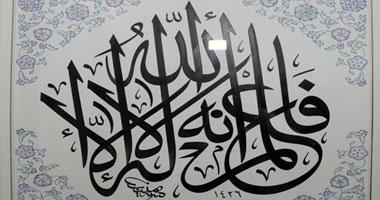 فاعلم أنه لا إله إلا الله
١٤٢٦